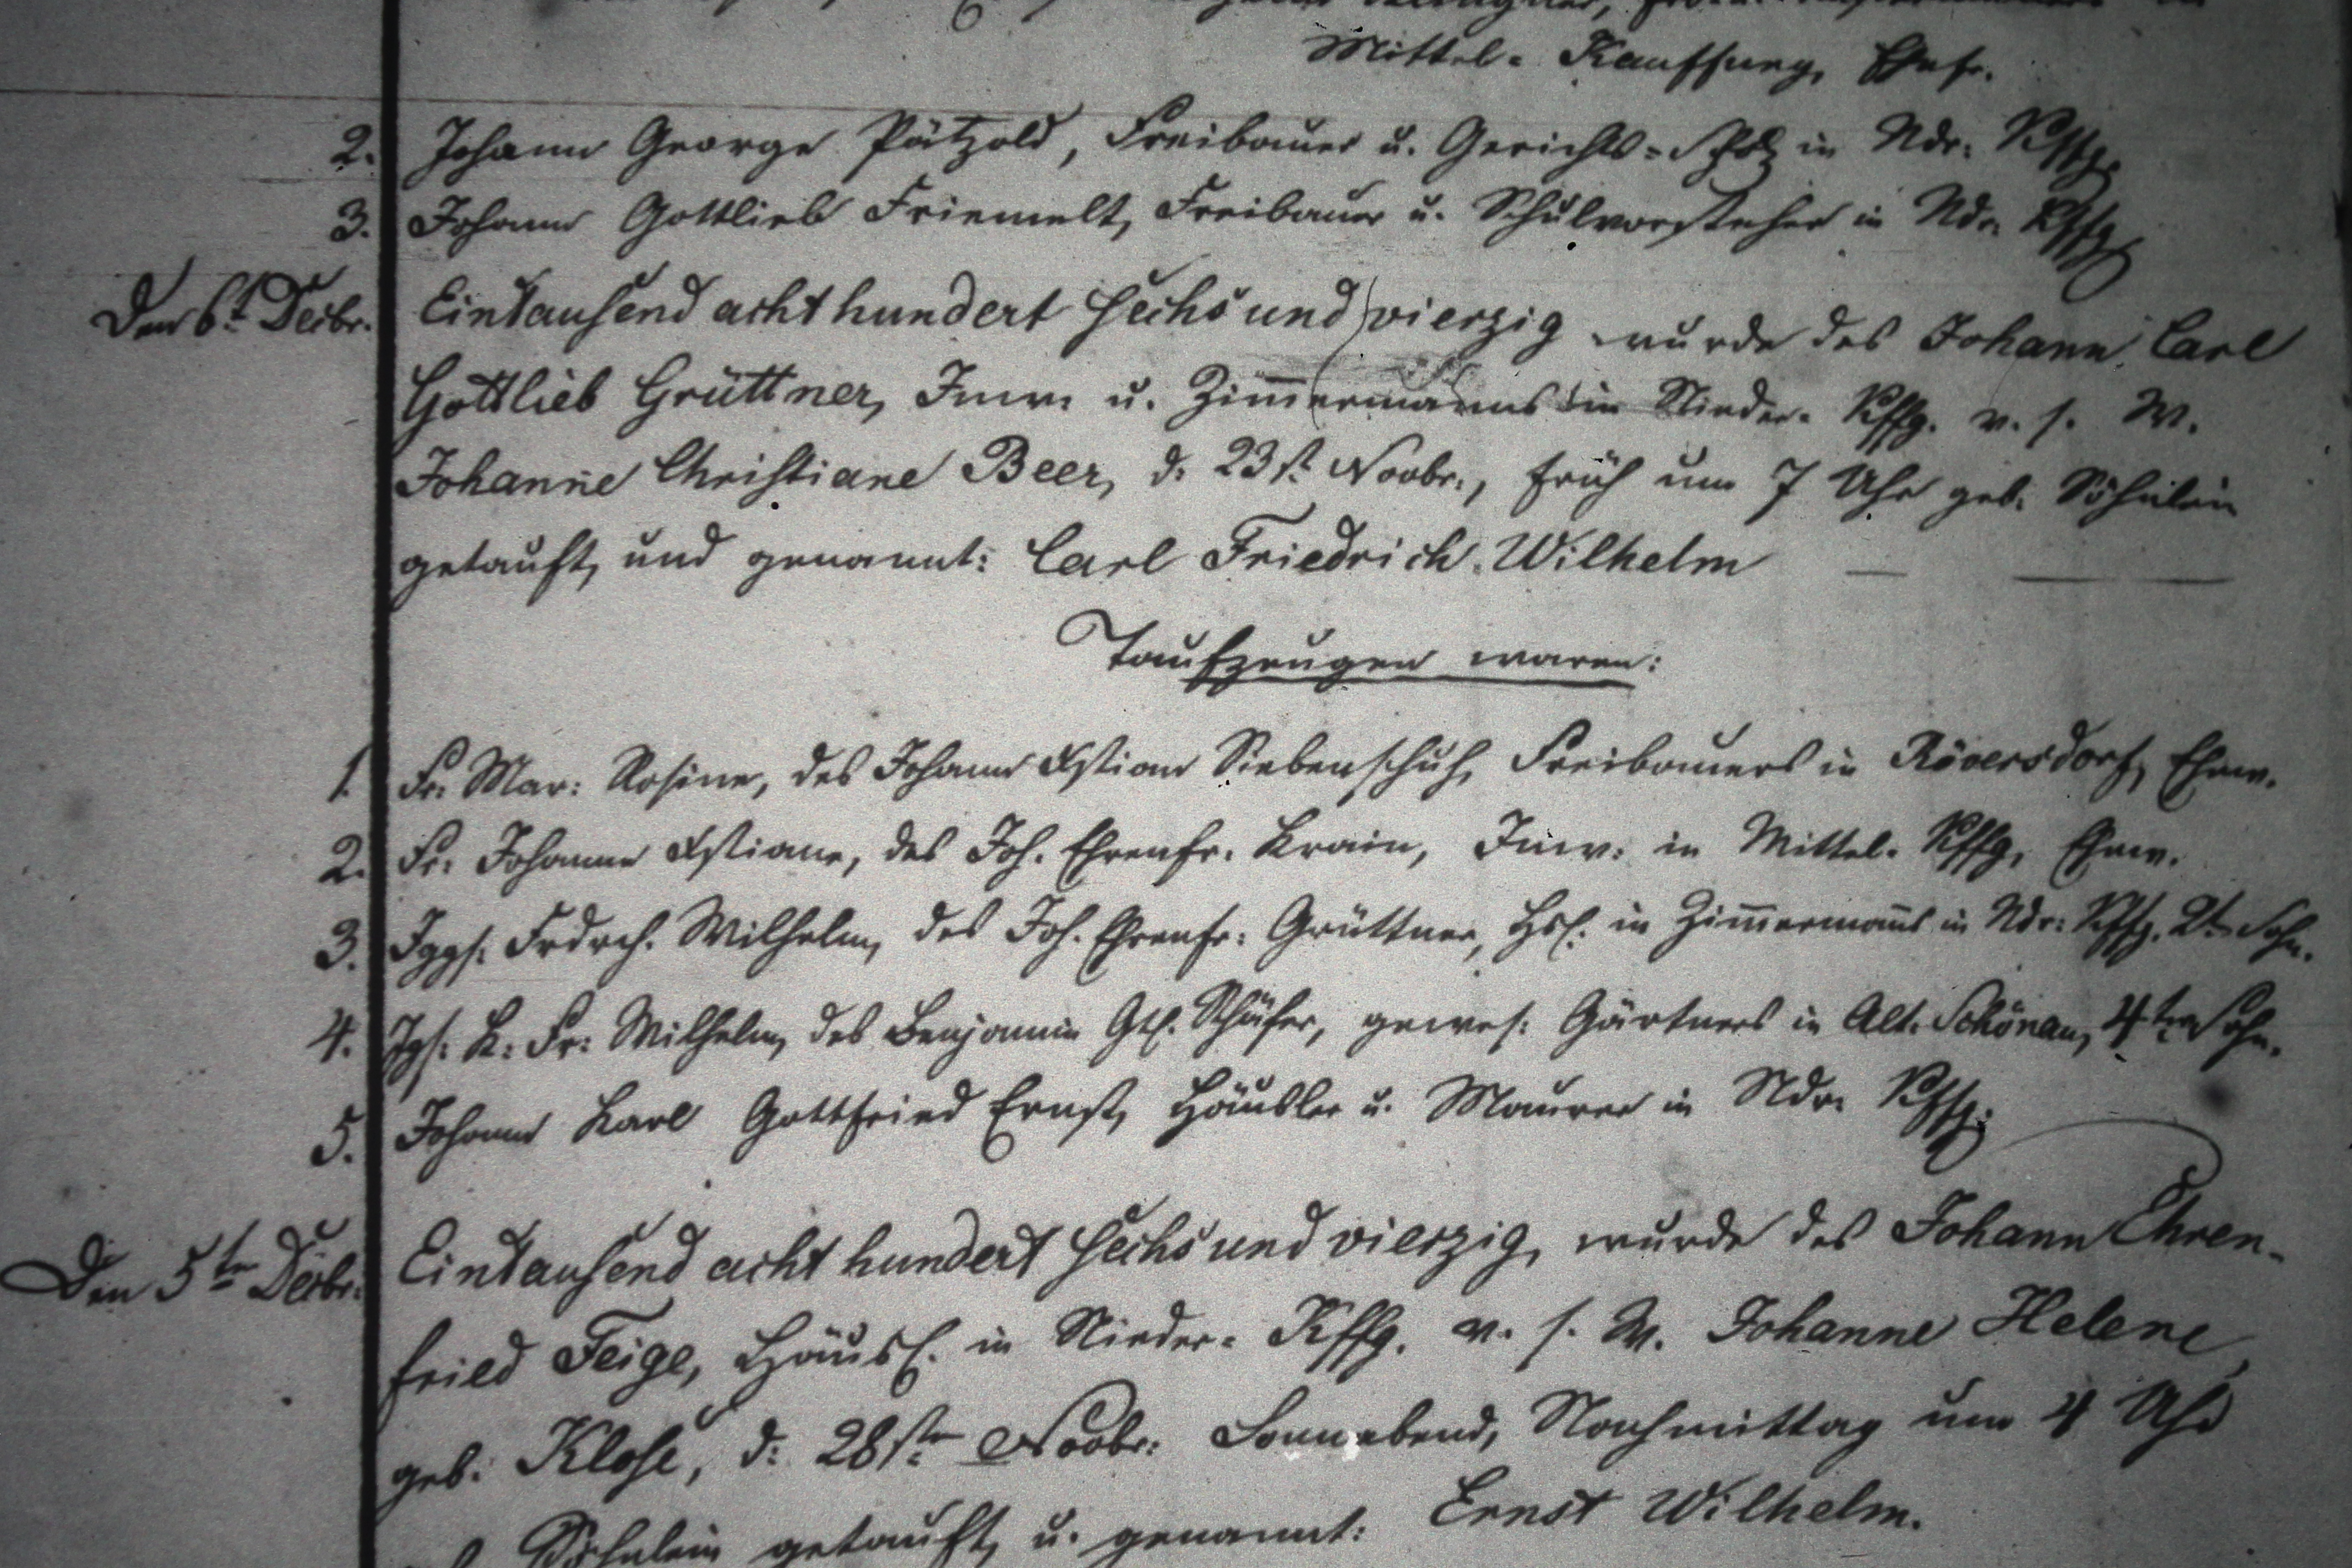 Mittel-Kauffung, Ehefr.
2. Johann George Pätzold, Freibauer u. Gerichts-Scholz in Ndr: Kffg.
3. Johann Gottlieb Friemelt, Freibauer u. Schulvorsteher in Ndr: Kffg.
Den 6t. Decbr. Eintausend acht hundert sechs und vierzig wurde des Johann Carl
Gottlieb Grüttner, Inw. u. Zim̅ermanns in Nieder-Kffg. v. s. W.
Johanne Christiane Beer, d. 23st. Novbr., früh um 7 Uhr geb. Söhnlein
getauft, und genannt: Carl Friedrich Wilhelm
Taufzeugen waren:
1. Fr. Mar: Rosine, des Johann Xstian Siebenschuh, Freibauers in Röversdorf, Ehew.
2. Fr: Johanne Xstiane, des Joh. Ehrenfr. Krain, Inw: in Mittel-Kffg, Ehew.
3. Jggs. Frdrch. Wilhelm, des Joh. Ehrenfr: Grüttner, Hsl. u. Zim̅erman̅s in Ndr: Kffg. 2t. Sohn.
4. Jgs: K: Fr: Wilhelm, des Benjamin Gtl. Schäfer, gewes: Gärtners in Alt-Schönau, 4ter Sohn.
5. Johann Karl Gottfried Ernst, Häusler u. Maurer in Ndr: Kffg.
Den 5ten Decbr. Eintausend acht hundert sechs und vierzig, wurde des Johann Ehren-
fried Feige, Häusl. in Nieder-Kffg. v. s. W. Johanne Helene,
geb. Klose, d: 28sten Novbr: Sonnabend, Nachmittag um 4 Uhr
Söhnlein getauft, u. genannt: Ernst Wilhelm.